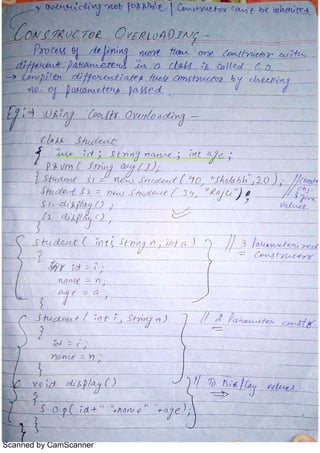 → overriding not possible | Constructor can't be inherited
CONSTRUCTOR OVERLOADING -
Process of defining more than one constructor with
different parameters in a class is called C.O
→ Compiler differentiates these constructor by checking
no. of parameters passed.
Eg:→ Using Constr. Overloading -
class Student
{ int id ; string name ; int age ;
psvm ( string arg[ ] ),
{ Student s1 = new Student ( 40, "Shalabh", 20 ) ; // create
Student s2 = new Student ( 34, "Rajat" ) ; obj. & give
s1. display ( ) ; values.
s2. display ( ) ;
}
student ( int i, string n, int a ) // 3 parameterized
{ = constructor
id = i ;
name = n ;
age = a ;
}
student ( int i , string n ) // 2 Parameter constr.
{
id = i ;
name = n ;
}
void display ( ) // To Display values.
{
S.o.p ( id + " " + name " " + age ) ;
}
}
Scanned by CamScanner